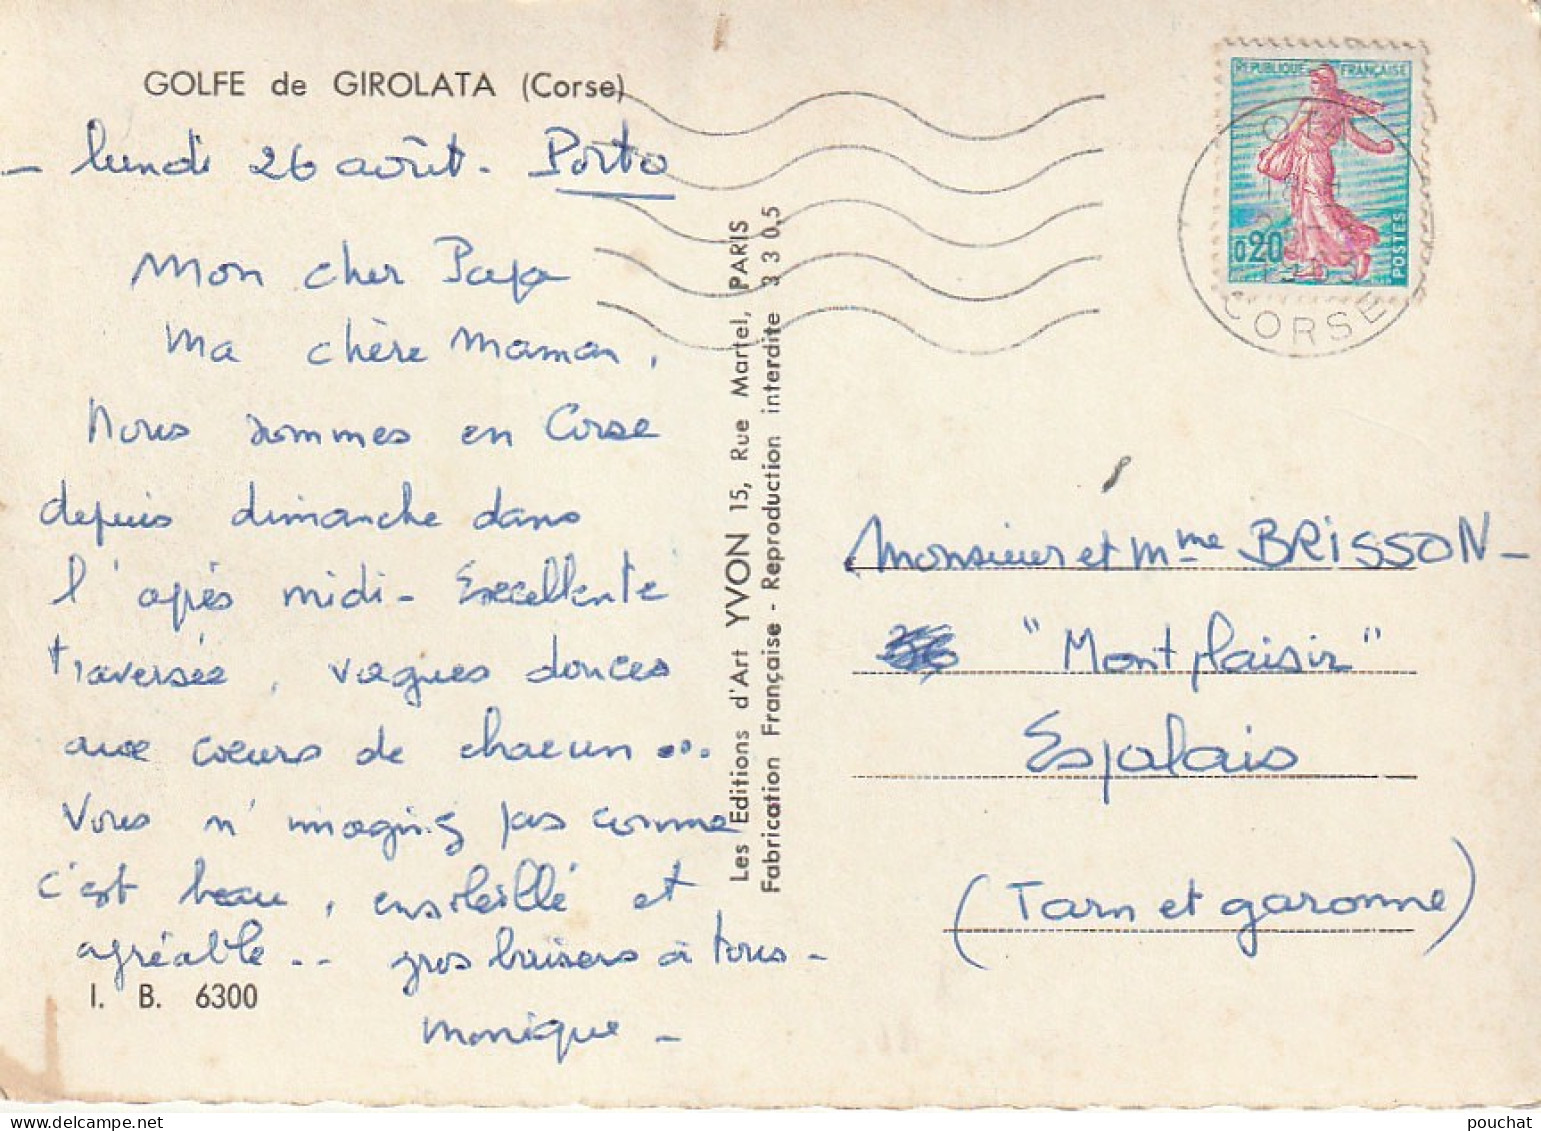 GOLFE de GIROLATA (Corse)
- lundi 26 août - Porto
Mon cher Papa
Ma chère Maman,
Nous sommes en Corse
depuis dimanche dans
l'après midi - Excellente
traversée, vagues douces
aux coeurs de chacun ...
Vous n'imaginez pas comme
c'est beau, ensoleillé et
agréable .. gros baisers à tous -
monique -
I. B. 6300
Les Editions d'Art YVON 15, Rue Martel, PARIS
Fabrication Française - Reproduction interdite 3 3 0.5
REPUBLIQUE FRANÇAISE
0,20
POSTES
OTA
CORSE
Monsieur et Mme BRISSON -
"Montplaisir"
Espalais
(Tarn et garonne)
pouchat